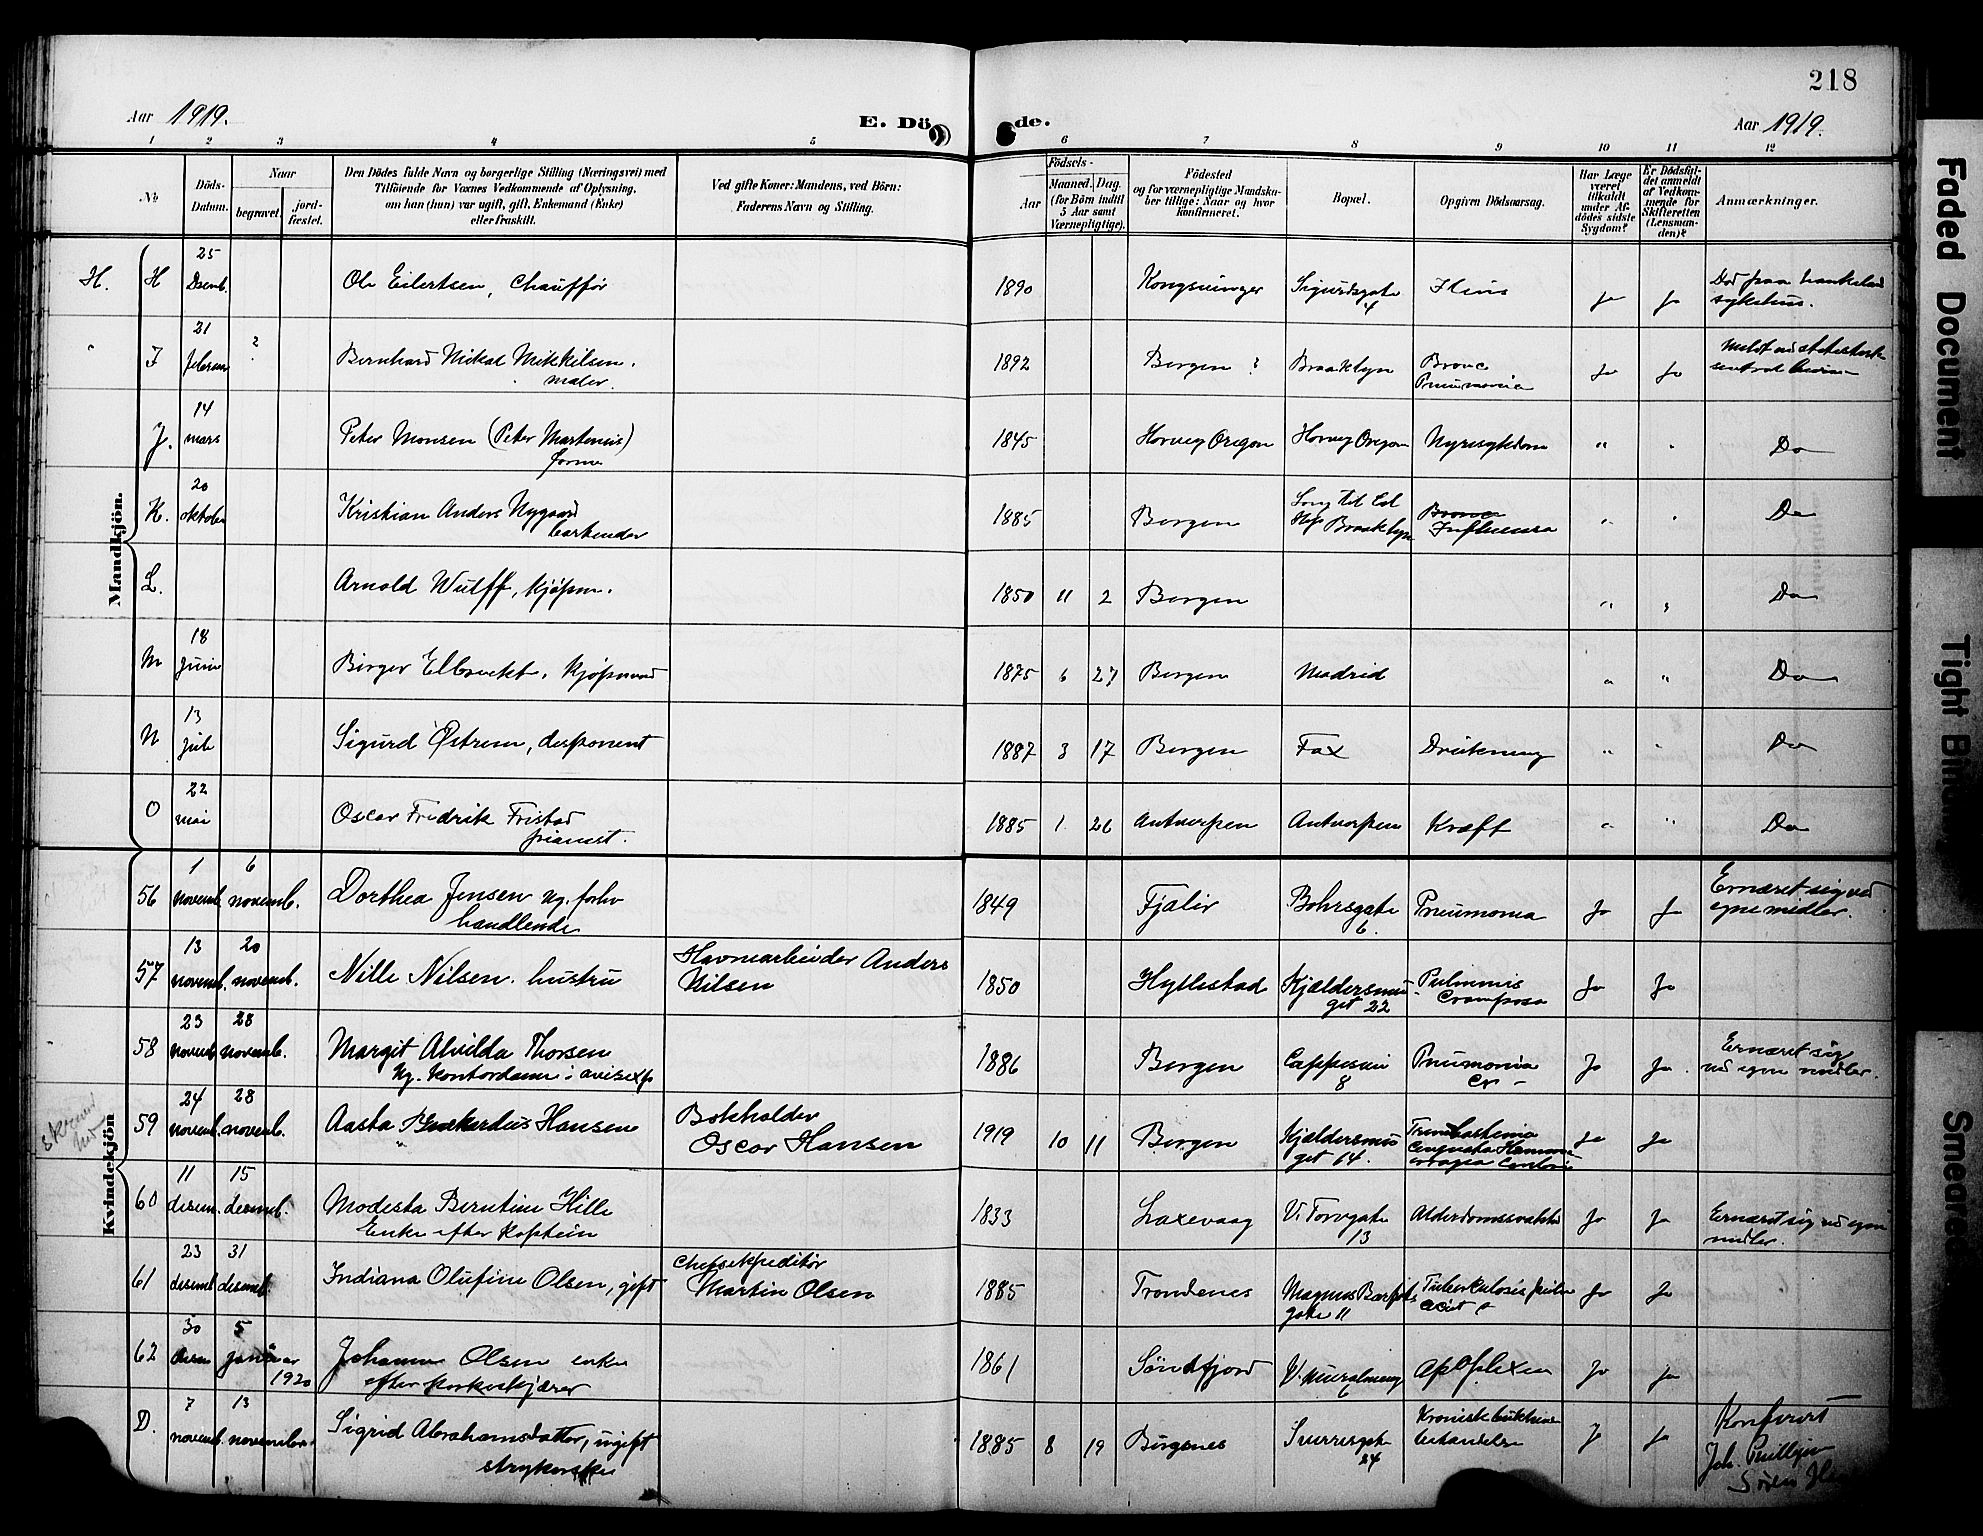 218
Aar 1919.
E. Dö de.
Aar 1919.
1 2 3 4 5 6 7 8 9 10 11 12
No
Döds-Datum.
Naar
begravet.
jord-fæstet.
Den Dödes fulde Navn og borgerlige Stilling (Næringsvei) med
Tilföiende for Voxnes Vedkommende af Oplysning,
om han (hun) var ugift, gift, Enkemand (Enke)
eller fraskilt.
Ved gifte Koner: Mandens, ved Börn:
Faderens Navn og Stilling.
Födsels-
Aar
Maaned. Dag.
(for Börn indtil
5 Aar samt
Værnepligtige).
Födested
og for værnepligtige Mandska-
ber tillige: Naar og hvor
konfirmeret.
Bopæl.
Opgiven Dödsaarsag.
Har Læge
været
tilkaldt
under Af-
dödes sidste
Sygdom?
Er Dödsfal-
det anmeldt
af Vedkom-
mende for
Skifteretten
(Lensman-
den)?
Anmærkninger.
Mandkjön.
H. H 25 Desemb. Ole Eilertsen, Chauffør 1890 Kongsvinger Sigurdsgate 4 Ja Ja sykehus.
I 21 februar ? Bernhard Mikal Mikkelsen. maler. 1892 Bergen ? Braaklyn Bronc Pneumonia Ja Ja
J. 14 mars Peter Monsen (Peter Martenius) former 1845 Horvey Oregon Horvey Oregon Nyresykdom " " Do
K. 20 oktober Kristian Anders Nygaard bartender 1885 Bergen Braaklyn Bronco Influensa " " Do
L. Arnold Wulff, kjøpm. 1850 11 2 Bergen " " Do
M 18 juni Birger Ellbrekt, kjøpmand 1875 6 27 Bergen Madrid " " Do
N 13 juli Sigurd Østrem, disponent 1887 3 17 Bergen Fax Drukning " " Do
O 22 mai Oscar Fredrik Fristad pianist. 1885 1 26 Antwerpen Antwerpen Kræft " " Do
Kvindekjön
56 1 novemb. 6 novemb. Dorthea Jensen ug. forhv handlende 1849 Fjaler Bohrsgate 6. Pneumonia Ja Ja Ernæret sig ved egne midler.
57 13 novemb. 20 novemb. Nille Nilsen. hustru Havnearbeider Anders Nilsen 1850 Hyllestad Kjældersmu get 22 Ja Ja
58 23 novemb. 28 novemb. Margit Alvilda Thorsen ug. kontordame i avisexp 1886 Bergen Cappesmu 8 Pneumonia cr - Ja Ja. Ernæret sig ved egne midler.
59 24 novemb. 28 novemb. Aasta Hansen Bokholder Oscar Hansen 1919 10 11 Bergen Kjældersmu get 64. Ja Ja
60 11 desem. 15 desemb. Modesta Berntine Hille Enke efter Kaptein 1833 Laxevaag V. Torvgate 13 Alderdomssvakhet Ja Ja Ernæret sig ved egne midler.
61 23 desemb 31 desemb. Indiana Olufine Olsen, gift Chefsekspeditør Martin Olsen 1885 Trondenes Magnus Barfots gate 11 Tuberkulosis Ja Ja
62 30 desem 5 januar 1920 Johanne Olsen enke efter korkeskjærer 1861 Søndfjord V. Muralmeng 6 Apoplexia Ja Ja
D. 7 novemb. 13 november. Sigrid Abrahamsdatter, ugift strykerske 1885 8 19 Birgsnes Sverresgate 24 Kronisk behandelse Ja Ja Konferert
Faded Document
Tight Bin
Smeared